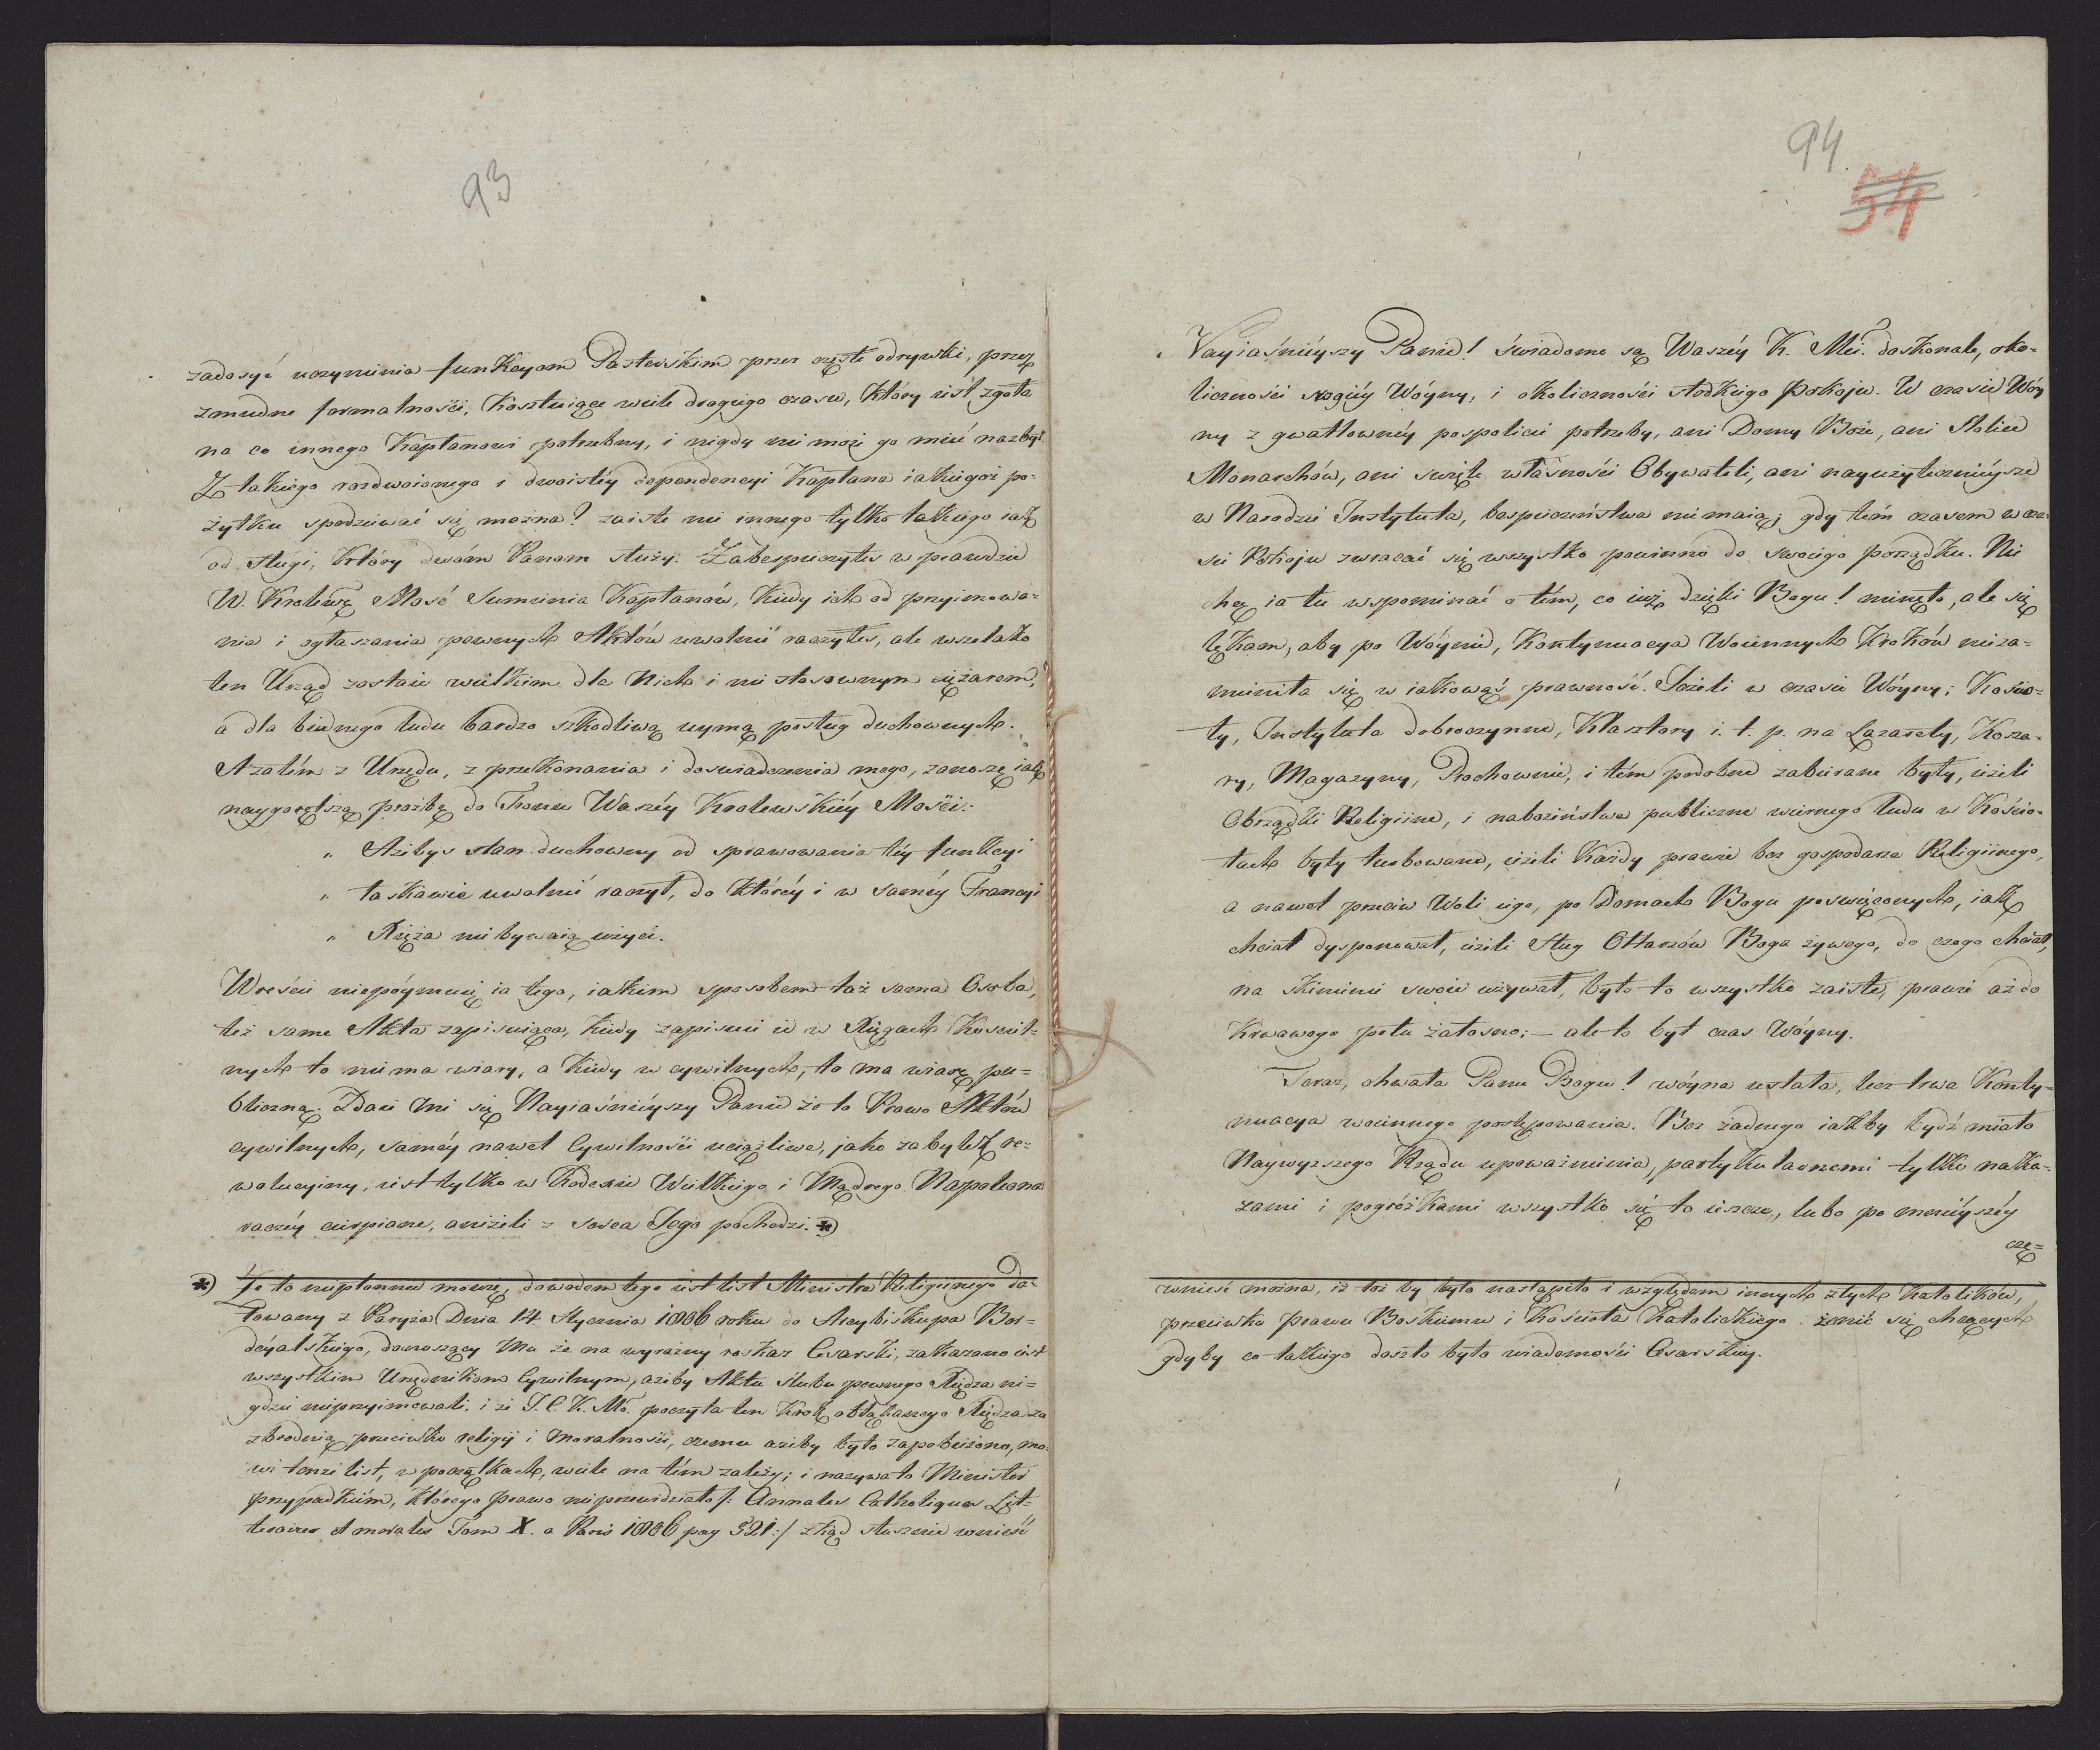 93
zadosyć uczynienia funkcyom Pasterskim przez częste odrywki, przez
zmudne formalności, kosztuiące wiele drogiego czasu, który iest zgoła
na co innego Kapłanowi potrzebny, i nigdy nie może go mieć nazbyt.
Z takiego rozdwoionego i dwoistey dependencyi Kapłana iakiegoż po-
żytku spodziewać się można? zaiste nie innego tylko takiego iak
od sługi, który dwóm Panom służy. Zabespieczyłeś w prawdzie
W. Królewską Mość Sumienia Kapłanów, kiedy ich od przyimowa-
nia i ogłaszania pewnych Aktów uwolnić raczyłeś, ale wszelako
ten Urząd zostaie wielkim dla Nich i nie stosownym ciężarem,
a dla biednego ludu bardzo szkodliwą uymą posług duchownych.
A zatém z Urzędu, z przekonania i doswiadczenia mego, zanoszę iak
naygorętszą prożbę do Tronu Waszéy Krolewskiéy Mości:
„ Ażebyś stan duchowny od sprawowania téy funkcyi
„ łaskawie uwolnić raczył, do któréy i w saméy Francyi
„ Xięża nie bywaią użyci.
Wreście niepóymuię ia tego, iakim sposobem taż sama Osoba,
też same Akta zapisuiąca, kiedy zapisuie ie w Xięgach Kościel-
nych to nie ma wiary, a kiedy w cywilnych, to ma wiarę pu-
bliczną. Zdaie mi się Nayiaśnieyszy Panie że to Prawo Aktów
cywilnych, saméy nawet Cywilności uciążliwe, jako zabytek re-
wolucyiny, iest tylko w Kodexie Wielkiego i Mądrego Napoleona
raczéy cierpiane, aniżeli z serca Jego pochodzi. *)
*) Że to niepłonnie mowię, dowodem tego iest list Ministra Religiinego da-
towany z Paryża Dnia 14. Stycznia 1806 roku do Arcybiskupa Bor-
deyalskiego, donoszący Mu że na wyraźny roskaz Cesarski, zakazano iest
wszystkim Urzędnikom Cywilnym, ażeby Aktu ślubu pewnego Xiędza ni-
gdzie nieprzyimowali, i że J. C. K. Mć. poczyta ten krok obłąkanego Xiędza za
zbrodnią przeciwko religii i moralności, czemu ażeby było zapobieżono, mo-
wi tenże list, w początkach, wiele na tém zależy; i nazywa to Minister
przypadkiém, którego prawo nieprzewidziało /: Annales Catholiques Lit-
teraires et morales Tom X. a Paris 1806 pag 321:/ zkąd słusznie wnieść
94
54
Nayiaśnieyszy Panie! świadome są Waszéy K. Mci. doskonale, oko-
liczności srogiéy Wóyny, i okoliczności słodkiego Pokoju. W czasie Wóy
ny z gwałtownéy pospolicie potrzeby, ani Domy Boże, ani Stolice
Monarchów, ani święte własności Obywateli, ani nayużytecznieysze
w Narodzie Instytuta, bespieczeństwa nie maią; gdy tém czasem w cza-
sie Pokoju zwracać się wszystko powinno do swoiego porządku. Nie
chcę ia tu wspominać o tém, co iuż dzięki Bogu! minęło, ale się
lękam, aby po Wóynie, Kontynuacya Woiennych Kroków nieza-
mieniła się w iakowąś prawność. Jeżeli w czasie Wóyny; Kościo-
ły, Instytuta dobroczynne, Klasztory i. t. p. na Lazarety, Kosza-
ry, Magazyny, Prochownie, i tém podobne zabierane były, ieżeli
Obrządki Religiine, i nabożeństwa publiczne wiernego ludu w Kościo-
łach były turbowane, ieżeli Każdy prawie bez gospodarza Religiinego,
a nawet przeciw Woli iego, po Domach Bogu poswięconych, iak
chciał dysponował, ieżeli sług Ołtarzów Boga żywego, do czego chciał,
na skinienie swoie używał, było to wszystko zaiste, prawie aż do
krwawego potu żałosne; – ale to był czas Wóyny.
Teraz, chwała Panu Bogu! wóyna ustała, lecz trwa Konty-
nuacya woiennego postępowania. Bez żadnego iakby bydź miało
Naywyzszego Rządu upoważnienia, partykularnemi tylko naka-
zami i pogróżkami wszystko się to iścize, lubo po mnieyszéy
czę-
wnieść można, iż toż by było nastąpiło i względem innych złych Katolików,
przeciwko prawu Boskiemu i Kościoła Katolickiego żenić się chcących
gdyby co takiego doszło było wiadomości Cesarskiey.